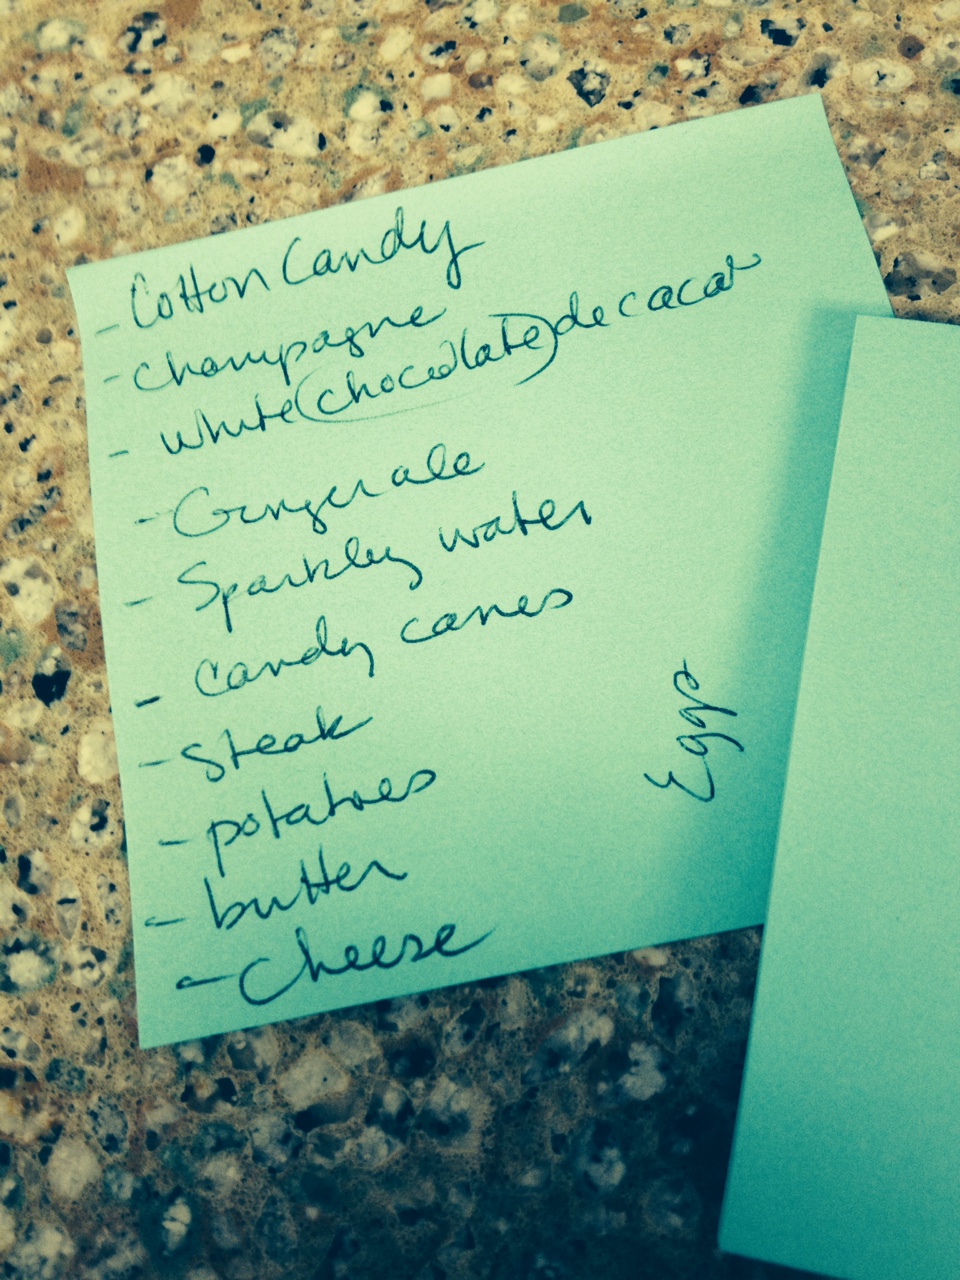 - Cotton Candy
- Champagne
- white chocolate de cacao
- Gingerale
- Sparkley water
- Candy canes
- Steak
- potatoes
- butter
- Cheese
Eggs